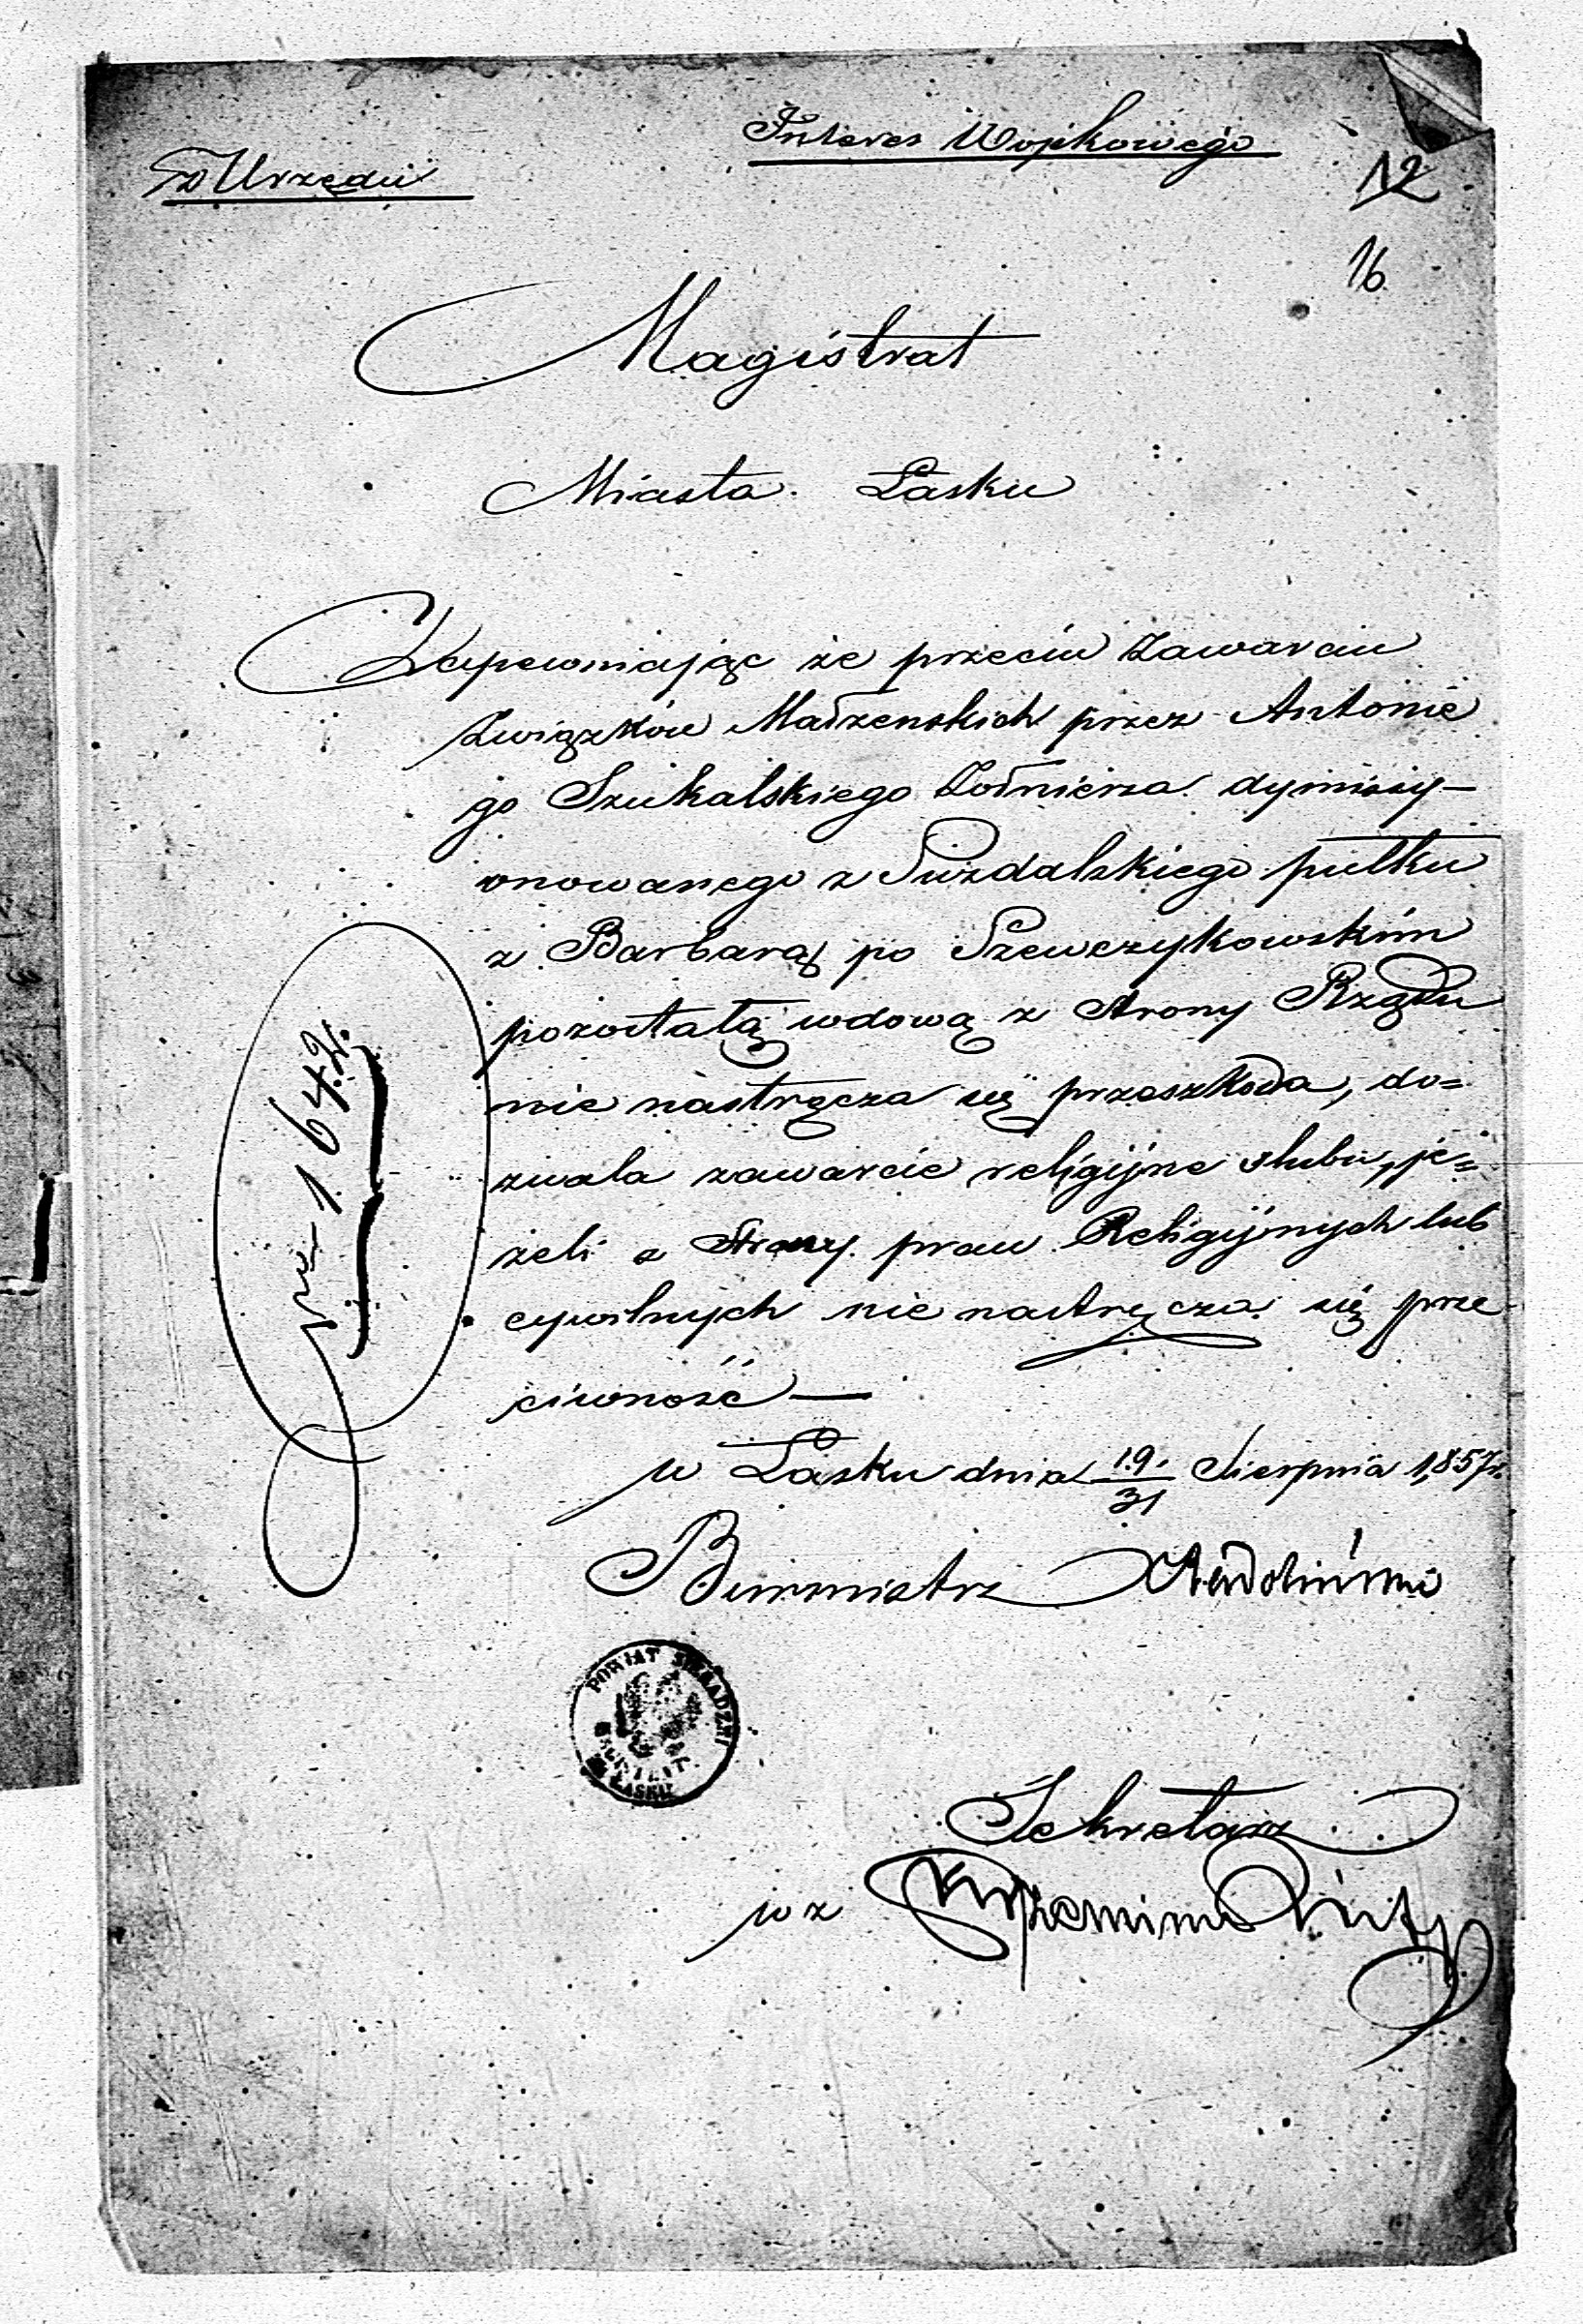 Interes Wojskowego
Z Urzędu
12
16
Magistrat
Miasta Łasku
Zapewniając że przeciw zawarciu
związków Małżenskich przez Antonie
go Szukalskiego Żołnierza dymissy-
onowanego z Suzdalskiego pułku
z Barbarą po Szewczykowskim
pozostałą wdową z strony Rządu
nie nastręcza się przeszkoda, do=
zwala zawarcie religijne slubu, je=
żeli z strony praw Religijnych lub
cywilnych nie nastręcza się prze
ciwność —
No 1642.
w Łasku dnia 19/31 Sierpnia 1857r.
Burmistrz
POWIAT SIERADZKI
MAGISTRAT
W ŁASKU
Sekretarz
w z